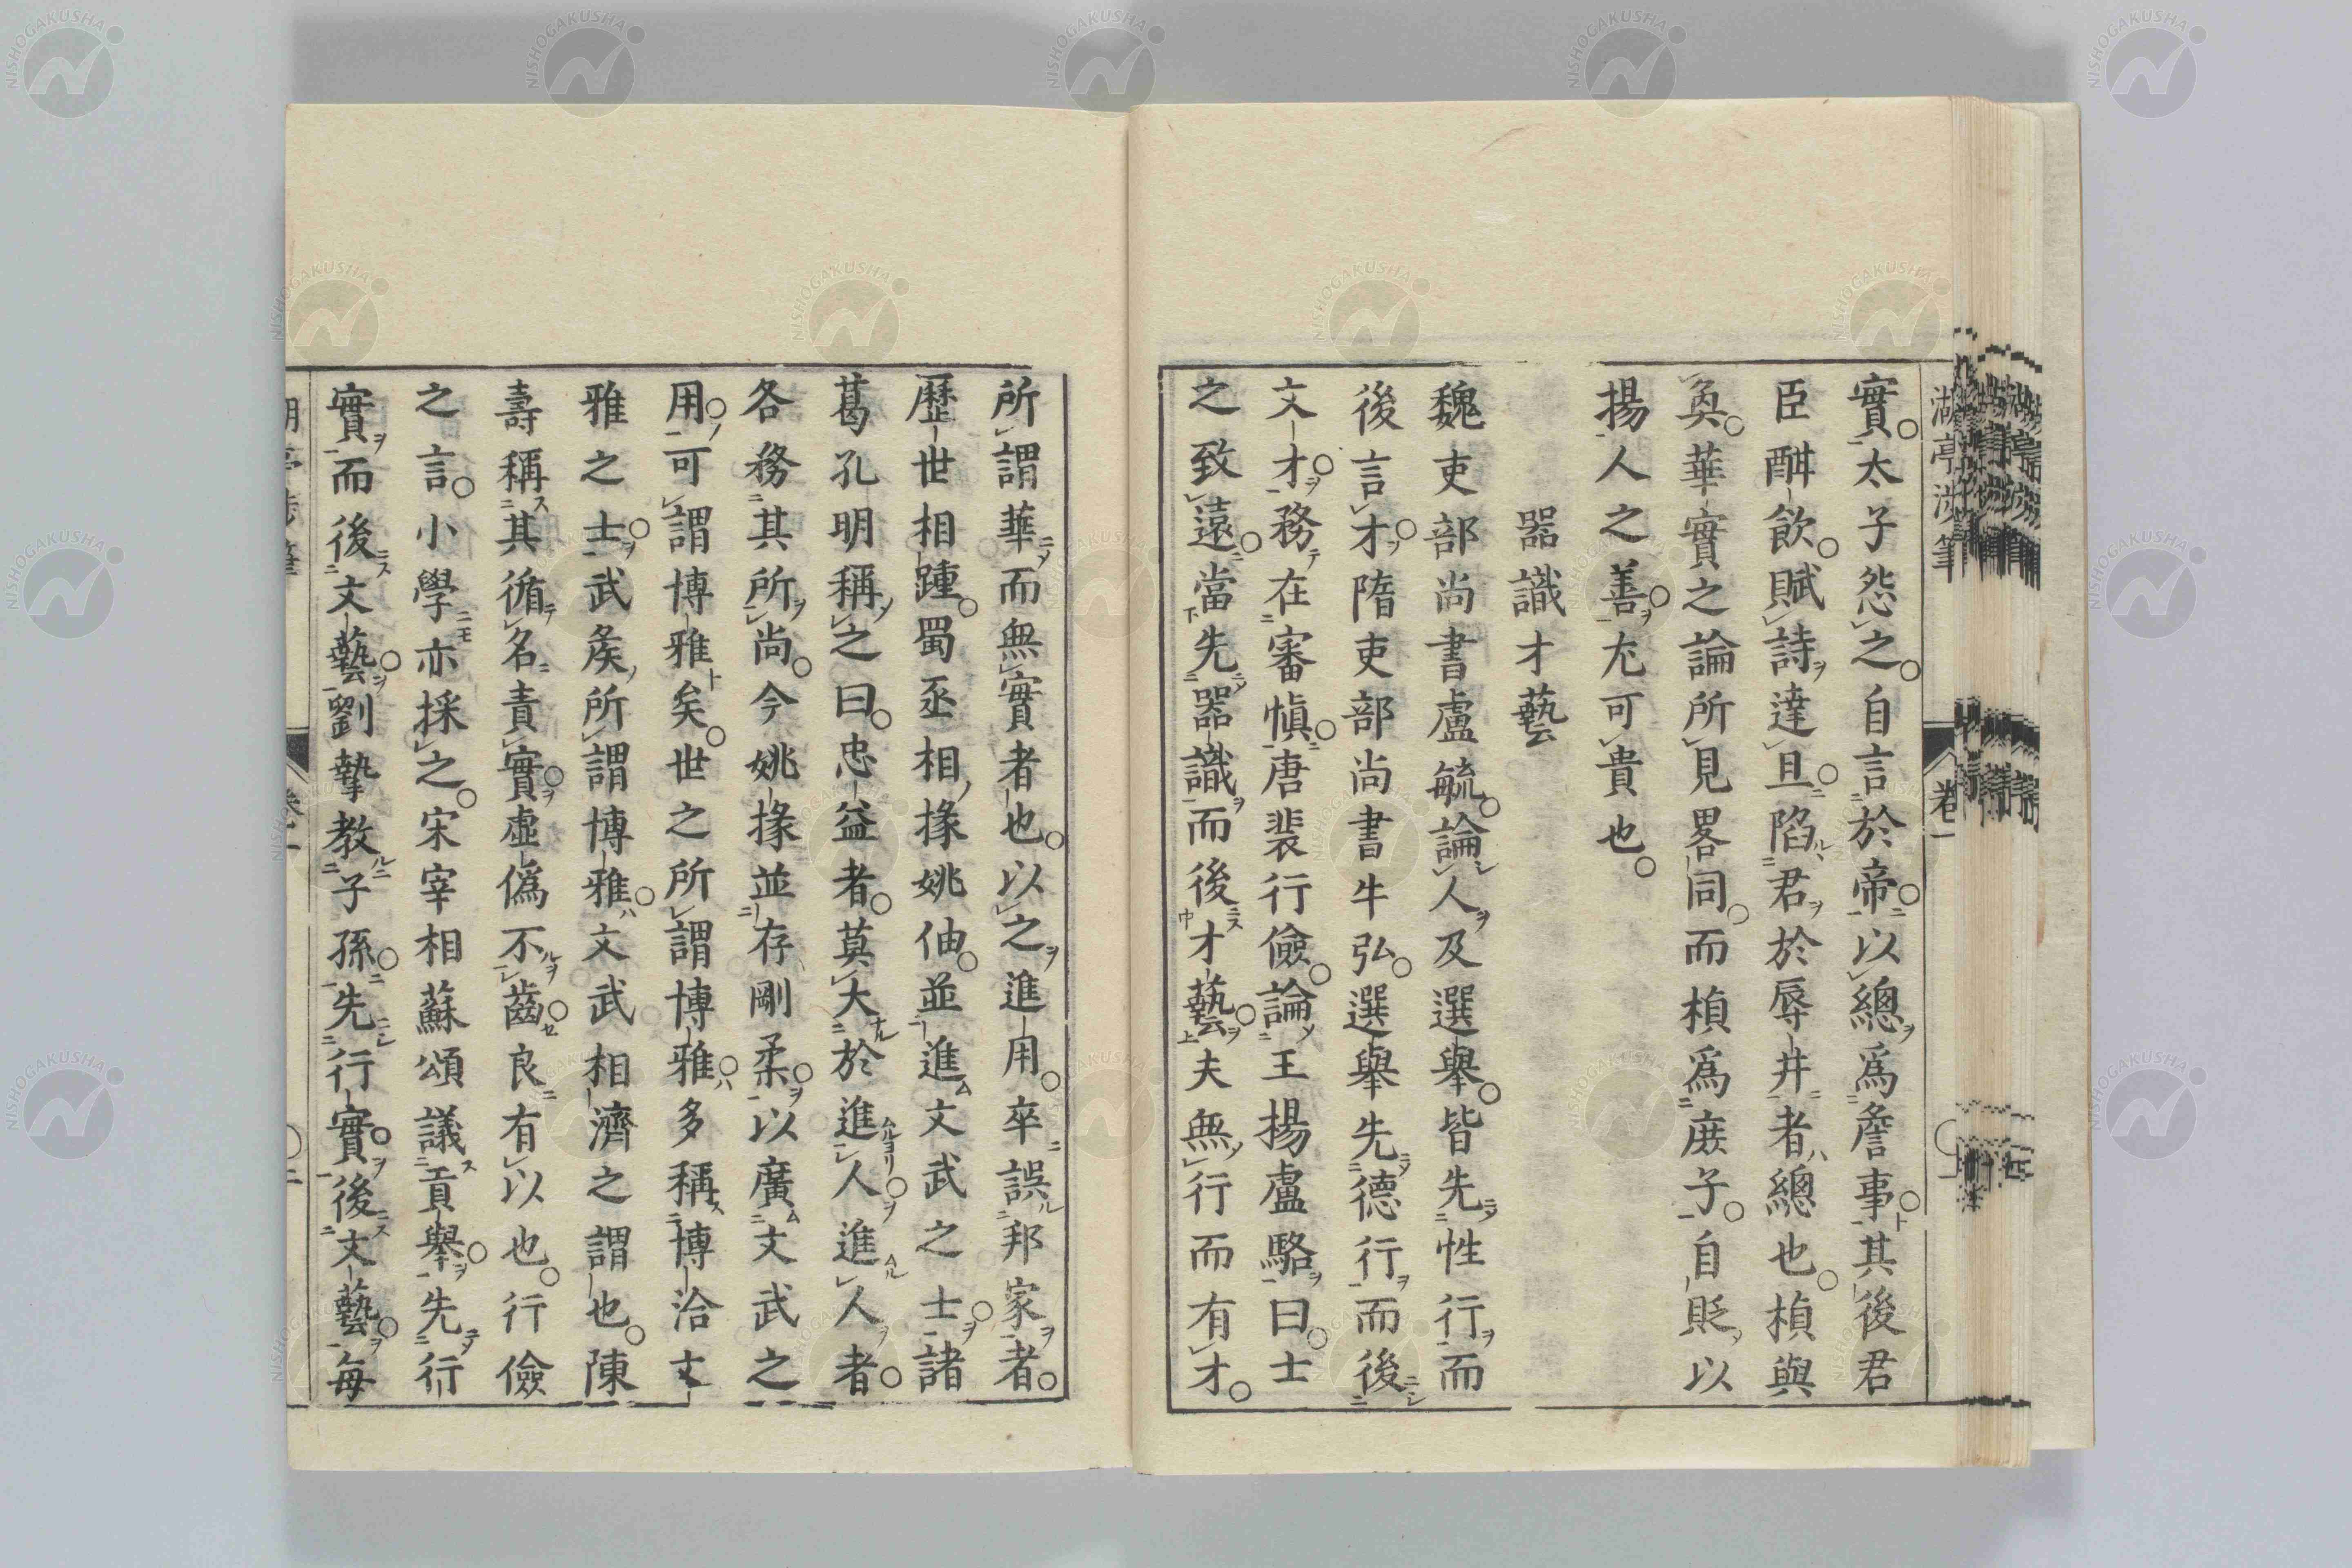 湖亭涉筆
卷一
實太子怨之自言於帝以總爲詹事其後君
臣酣飲賦詩達旦陷君於辱井者總也楨與
奐華實之論所見畧同而楨爲庻子自貶以
揚人之善尤可貴也
器識才藝
魏吏部尚書盧毓論人及選舉皆先性行而
後言才隋吏部尚書牛弘選舉先德行而後
文才務在審愼唐裴行儉論王揚盧駱曰士
之致遠當先器識而後才藝夫無行而有才
所謂華而無實者也以之進用卒誤邦家者
歷世相踵蜀丞相掾姚伷並進文武之士諸
葛孔明稱之曰忠益者莫大於進人進人者
各務其所尚今姚掾並存剛柔以廣文武之
用可謂博雅矣世之所謂博雅多稱博洽文
雅之士武矦所謂博雅文武相濟之謂也陳
壽稱其循名責實虛僞不齒良有以也行儉
之言小學亦採之宋宰相蘇頌議貢舉先行
實而後文藝劉摯教子孫先行實後文藝每
NISHOGAKUSHA